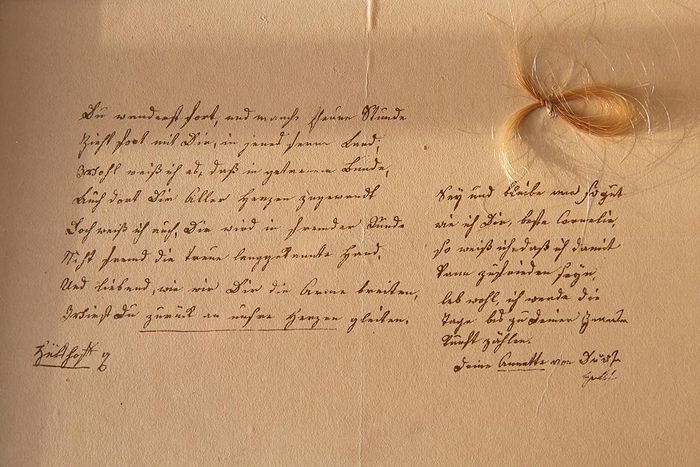 Du wanderst fort, und manche theure Stunde
Zieht fort mit Dir, in jenes ferne Land,
Wohl weiß ich es, daß in Bunde,
Auch dort Dir Aller Herzen zugewandt
Doch weiß ich auch, Dir wird in fremder Runde
Nicht fremd die treue langgekannte Hand,
Und liebend, wie wir Dir die Arme breiten,
Wirst Du zurück an unsre Herzen gleiten.
Hülshoff
Sey und bleibe mir so gut
wie ich Dir, beste Cornelie,
so weiß ich, daß ich damit
kann zufrieden seyn,
leb wohl, ich werde die
Tage bis zu Deiner
kunft zählen.
Deine Annette von Droste